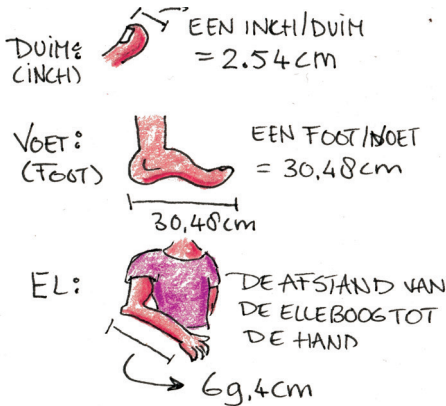 DUIM:
(INCH)
EEN INCH/DUIM
= 2.54cm
VOET:
(FOOT)
EEN FOOT/VOET
= 30,48cm
30,48cm
EL:
DE AFSTAND VAN
DE ELLEBOOG TOT
DE HAND
69,4cm